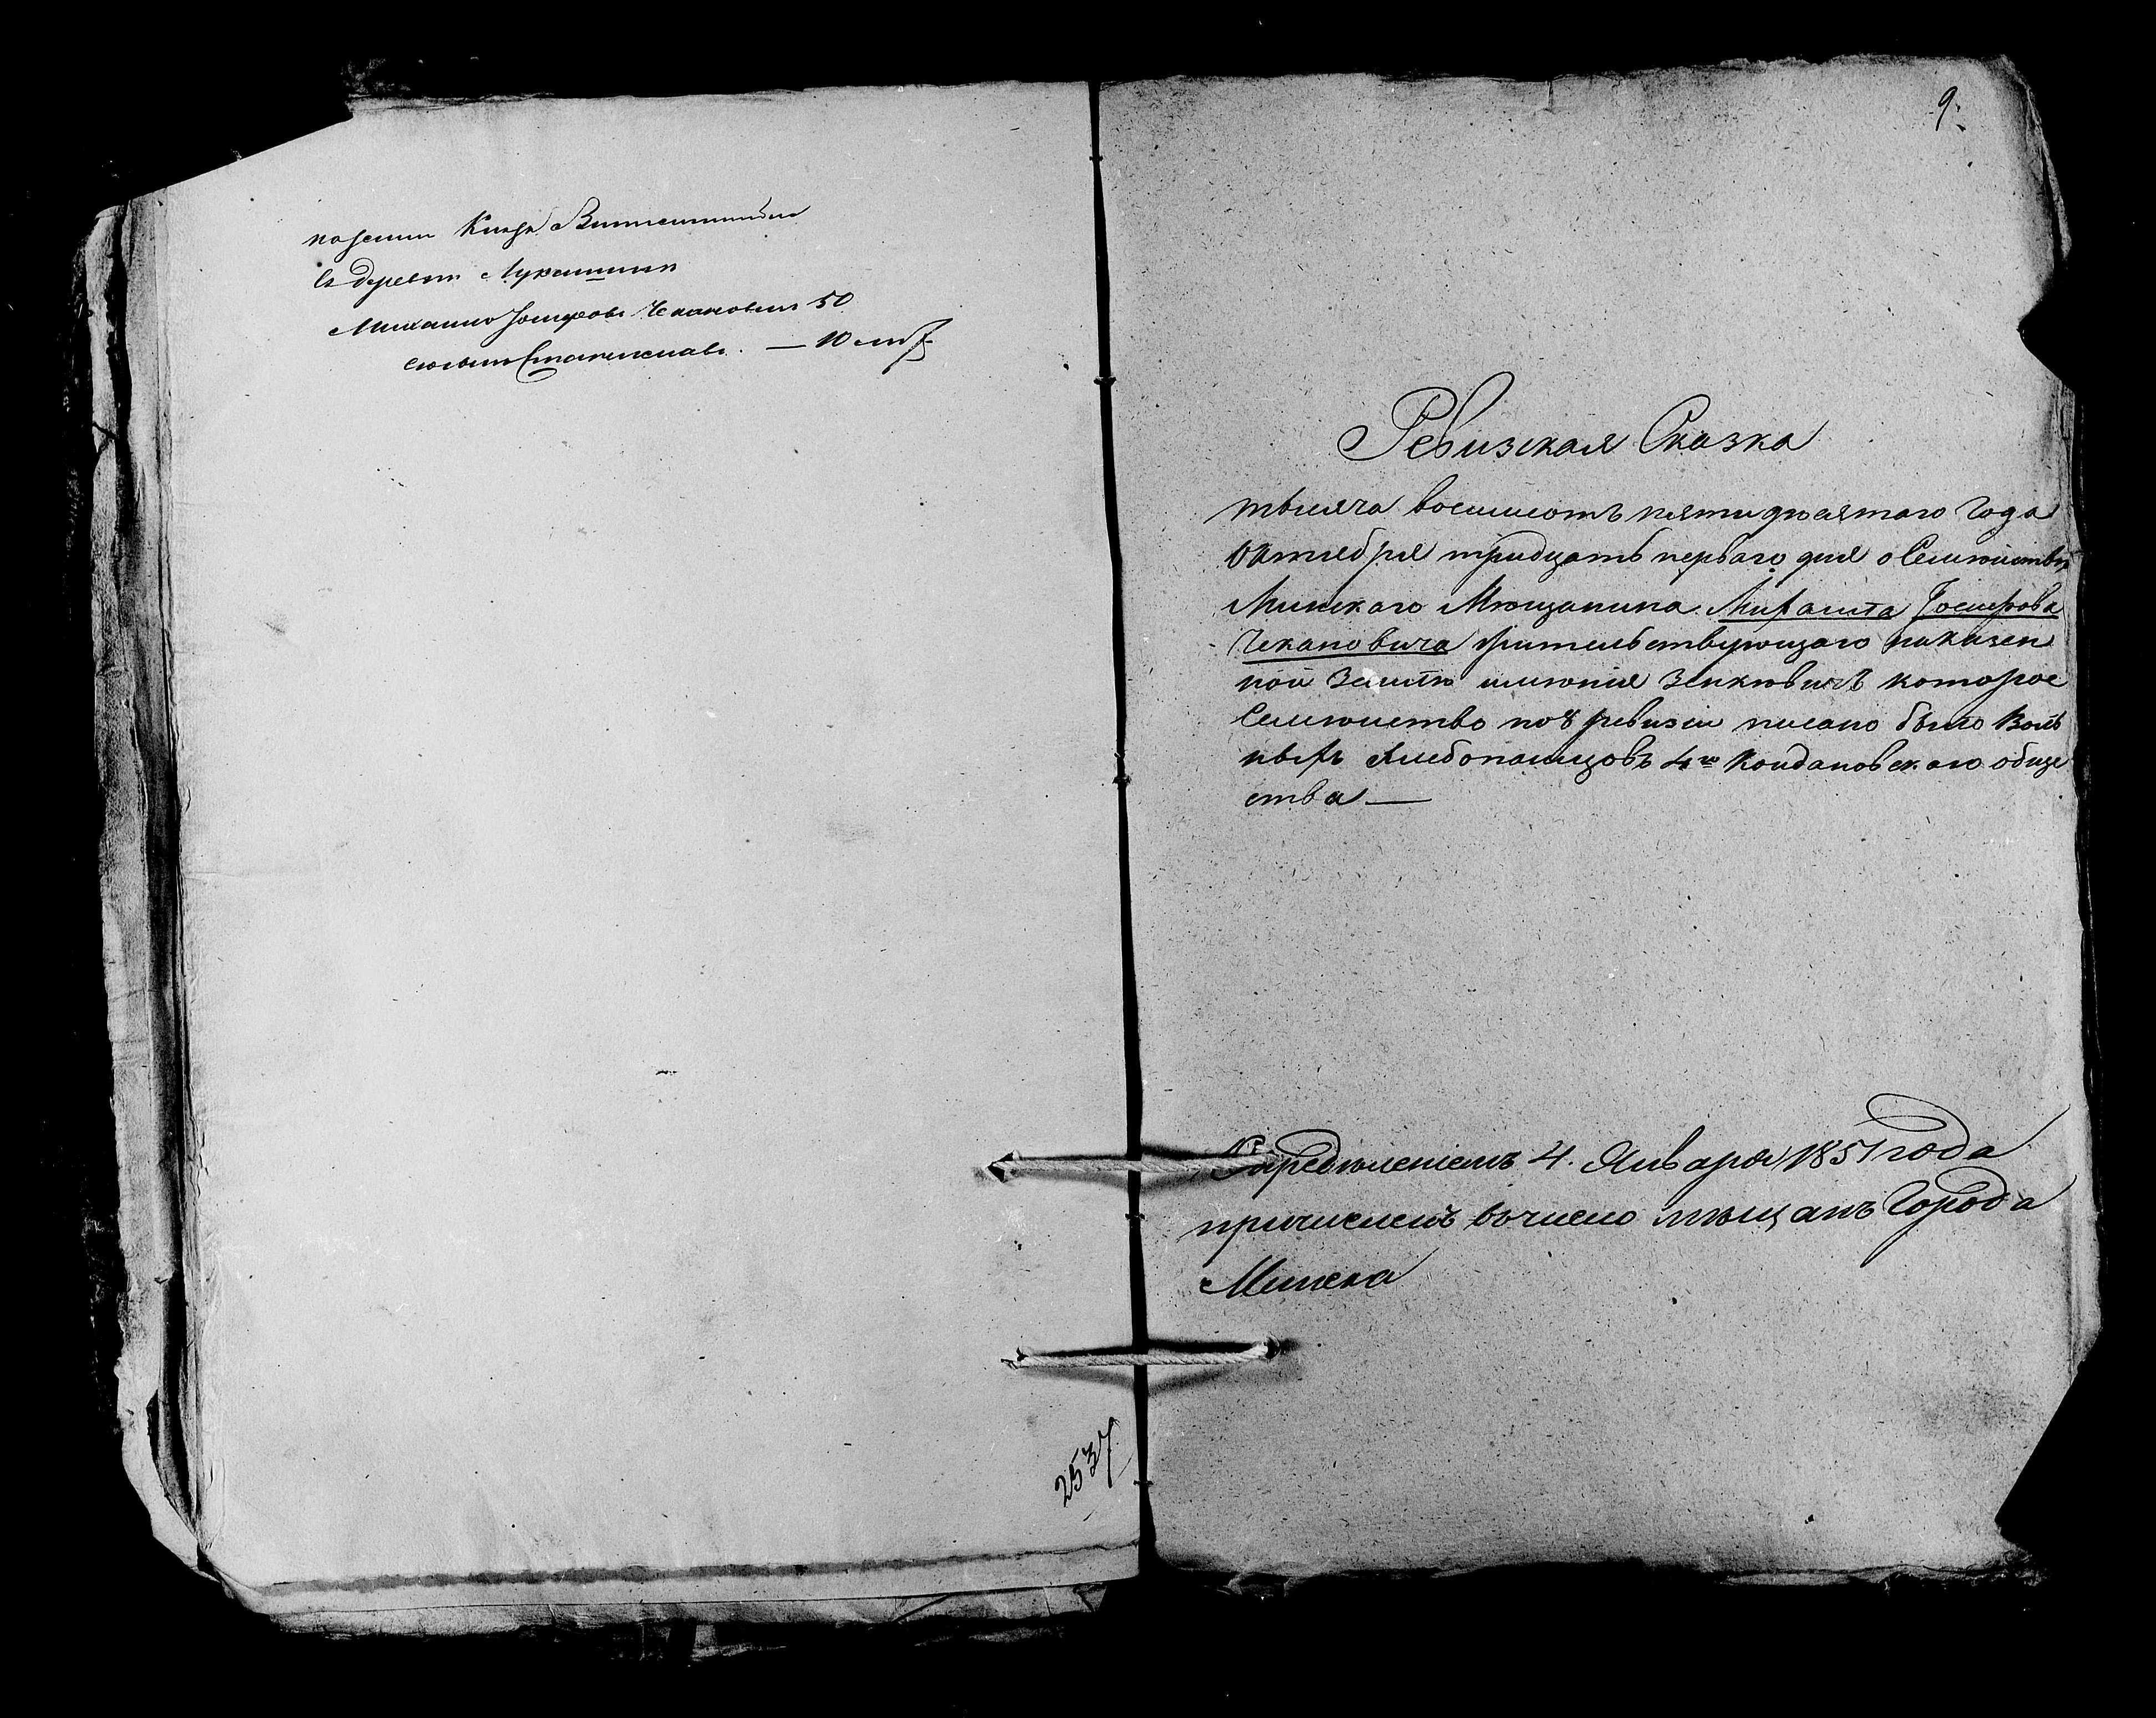 на земли Князя Витгенштейна
въ деревни Лукашина
Михаило Іосифовъ Чекановичъ 50
сынъ Станиславъ — 10
2537
9.
Ревизская Сказка
тысяча восемьсотъ пятидесятаго года
Октября тридцать перваго дня о Семѣйствѣ
Минскаго Мѣщанина Михаила Іосифова
Чекановича жительствующаго наказен
ной Землѣ имѣнія Зеньковичъ которое
Семѣйство по 8 ревизіи писано было Воль
ныхъ Хлебопашцовъ 4го Койдановскаго обще
ства —
Опредѣленіемъ 4. Января 1851 года
причисленъ вочисло мѣщанъ Города
Минска